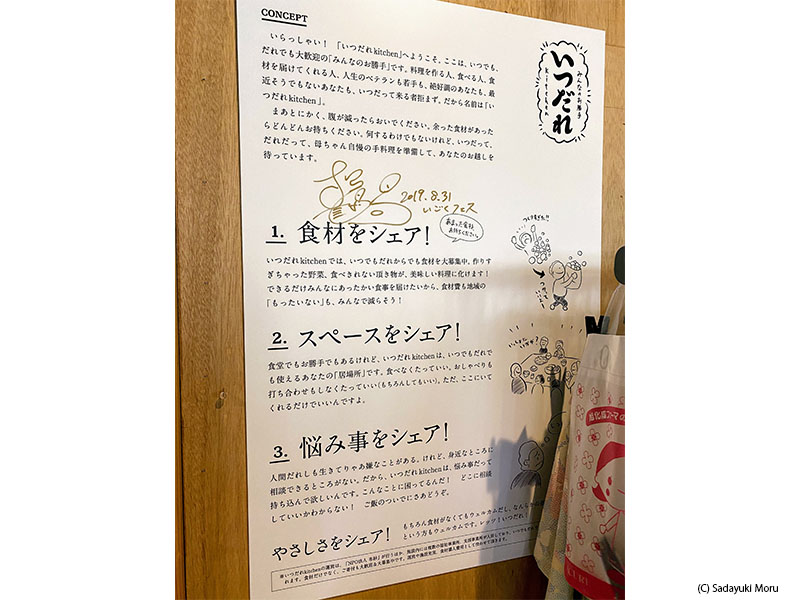 CONCEPT
いらっしゃい！「いつだれkitchen」へようこそ。ここは、いつでも、
だれでも大歓迎の「みんなのお勝手」です。料理を作る人、食べる人、食
材を届けてくれる人、人生のベテランも若手も、絶好調のあなたも、最
近そうでもないあなたも、いつだって来る者拒まず、だから名前は「い
つだれkitchen」。
まあとにかく、腹が減ったらおいでください。余った食材があった
らどんどんお持ちください。何するわけでもないけれど、いつだって、
だれだって、母ちゃん自慢の手料理を準備して、あなたのお越しを
待っています。
みんなのお勝手
いつだれ
kitchen
2019.8.31
いごくフェス
1. 食材をシェア！
あまった食材
お持ちください。
いつだれkitchenでは、いつでもだれからでも食材を大募集中。作りす
ぎちゃった野菜、食べきれない頂き物が、美味しい料理に化けます！
できるだけみんなにあったかい食事を届けたいから、食材費も地域の
「もったいない」も、みんなで減らそう！
2. スペースをシェア！
食堂でもお勝手でもあるけれど、いつだれkitchenは、いつでもだれで
も使えるあなたの「居場所」です。食べなくたっていい。おしゃべりも
打ち合わせもしなくたっていい（もちろんしてもいい）。ただ、ここにいて
くれるだけでいいんですよ。
3. 悩み事をシェア！
人間だれしも生きてりゃあ嫌なことがある。けれど、身近なところに
相談できるところがない。だから、いつだれkitchenは、悩み事だって
持ち込んで欲しいんです。こんなことに困ってるんだ！ どこに相談
していいかわからない！ ご飯のついでにさあどうぞ。
やさしさをシェア！
もちろん食材がなくてもウェルカムだし、なんに
という方もウェルカムです。レッツ！いつだれ！
(C) Sadayuki Moru